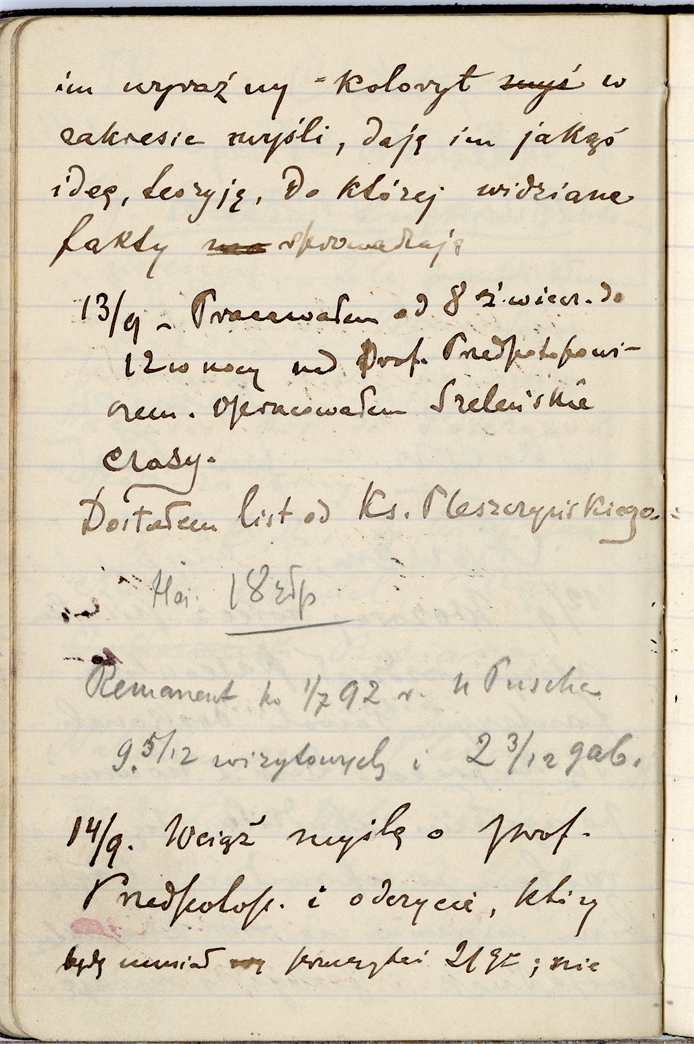 im wyraźny - koloryt myś w
zakresie myśli, dają im jakąś
ideę, teoryję, do której widziane
fakty sprowadzają
13/9 - Pracowałem od 8 wiecz. do
12 w nocy nad Prof. Przedpotopowi-
czem. Opracowałem Szeleńskie
czasy.
Dostałem list od Ks. Pleszczyńskiego.
18 złp
Remanent ko 1/7 92 r. u Puscha
9.5/12 wizytowych i 2 3/12 gab.
14/9. Wciąż myślę o prof.
Przedpotop. i odczycie, który
będę musiał przeczytać 21go; nie